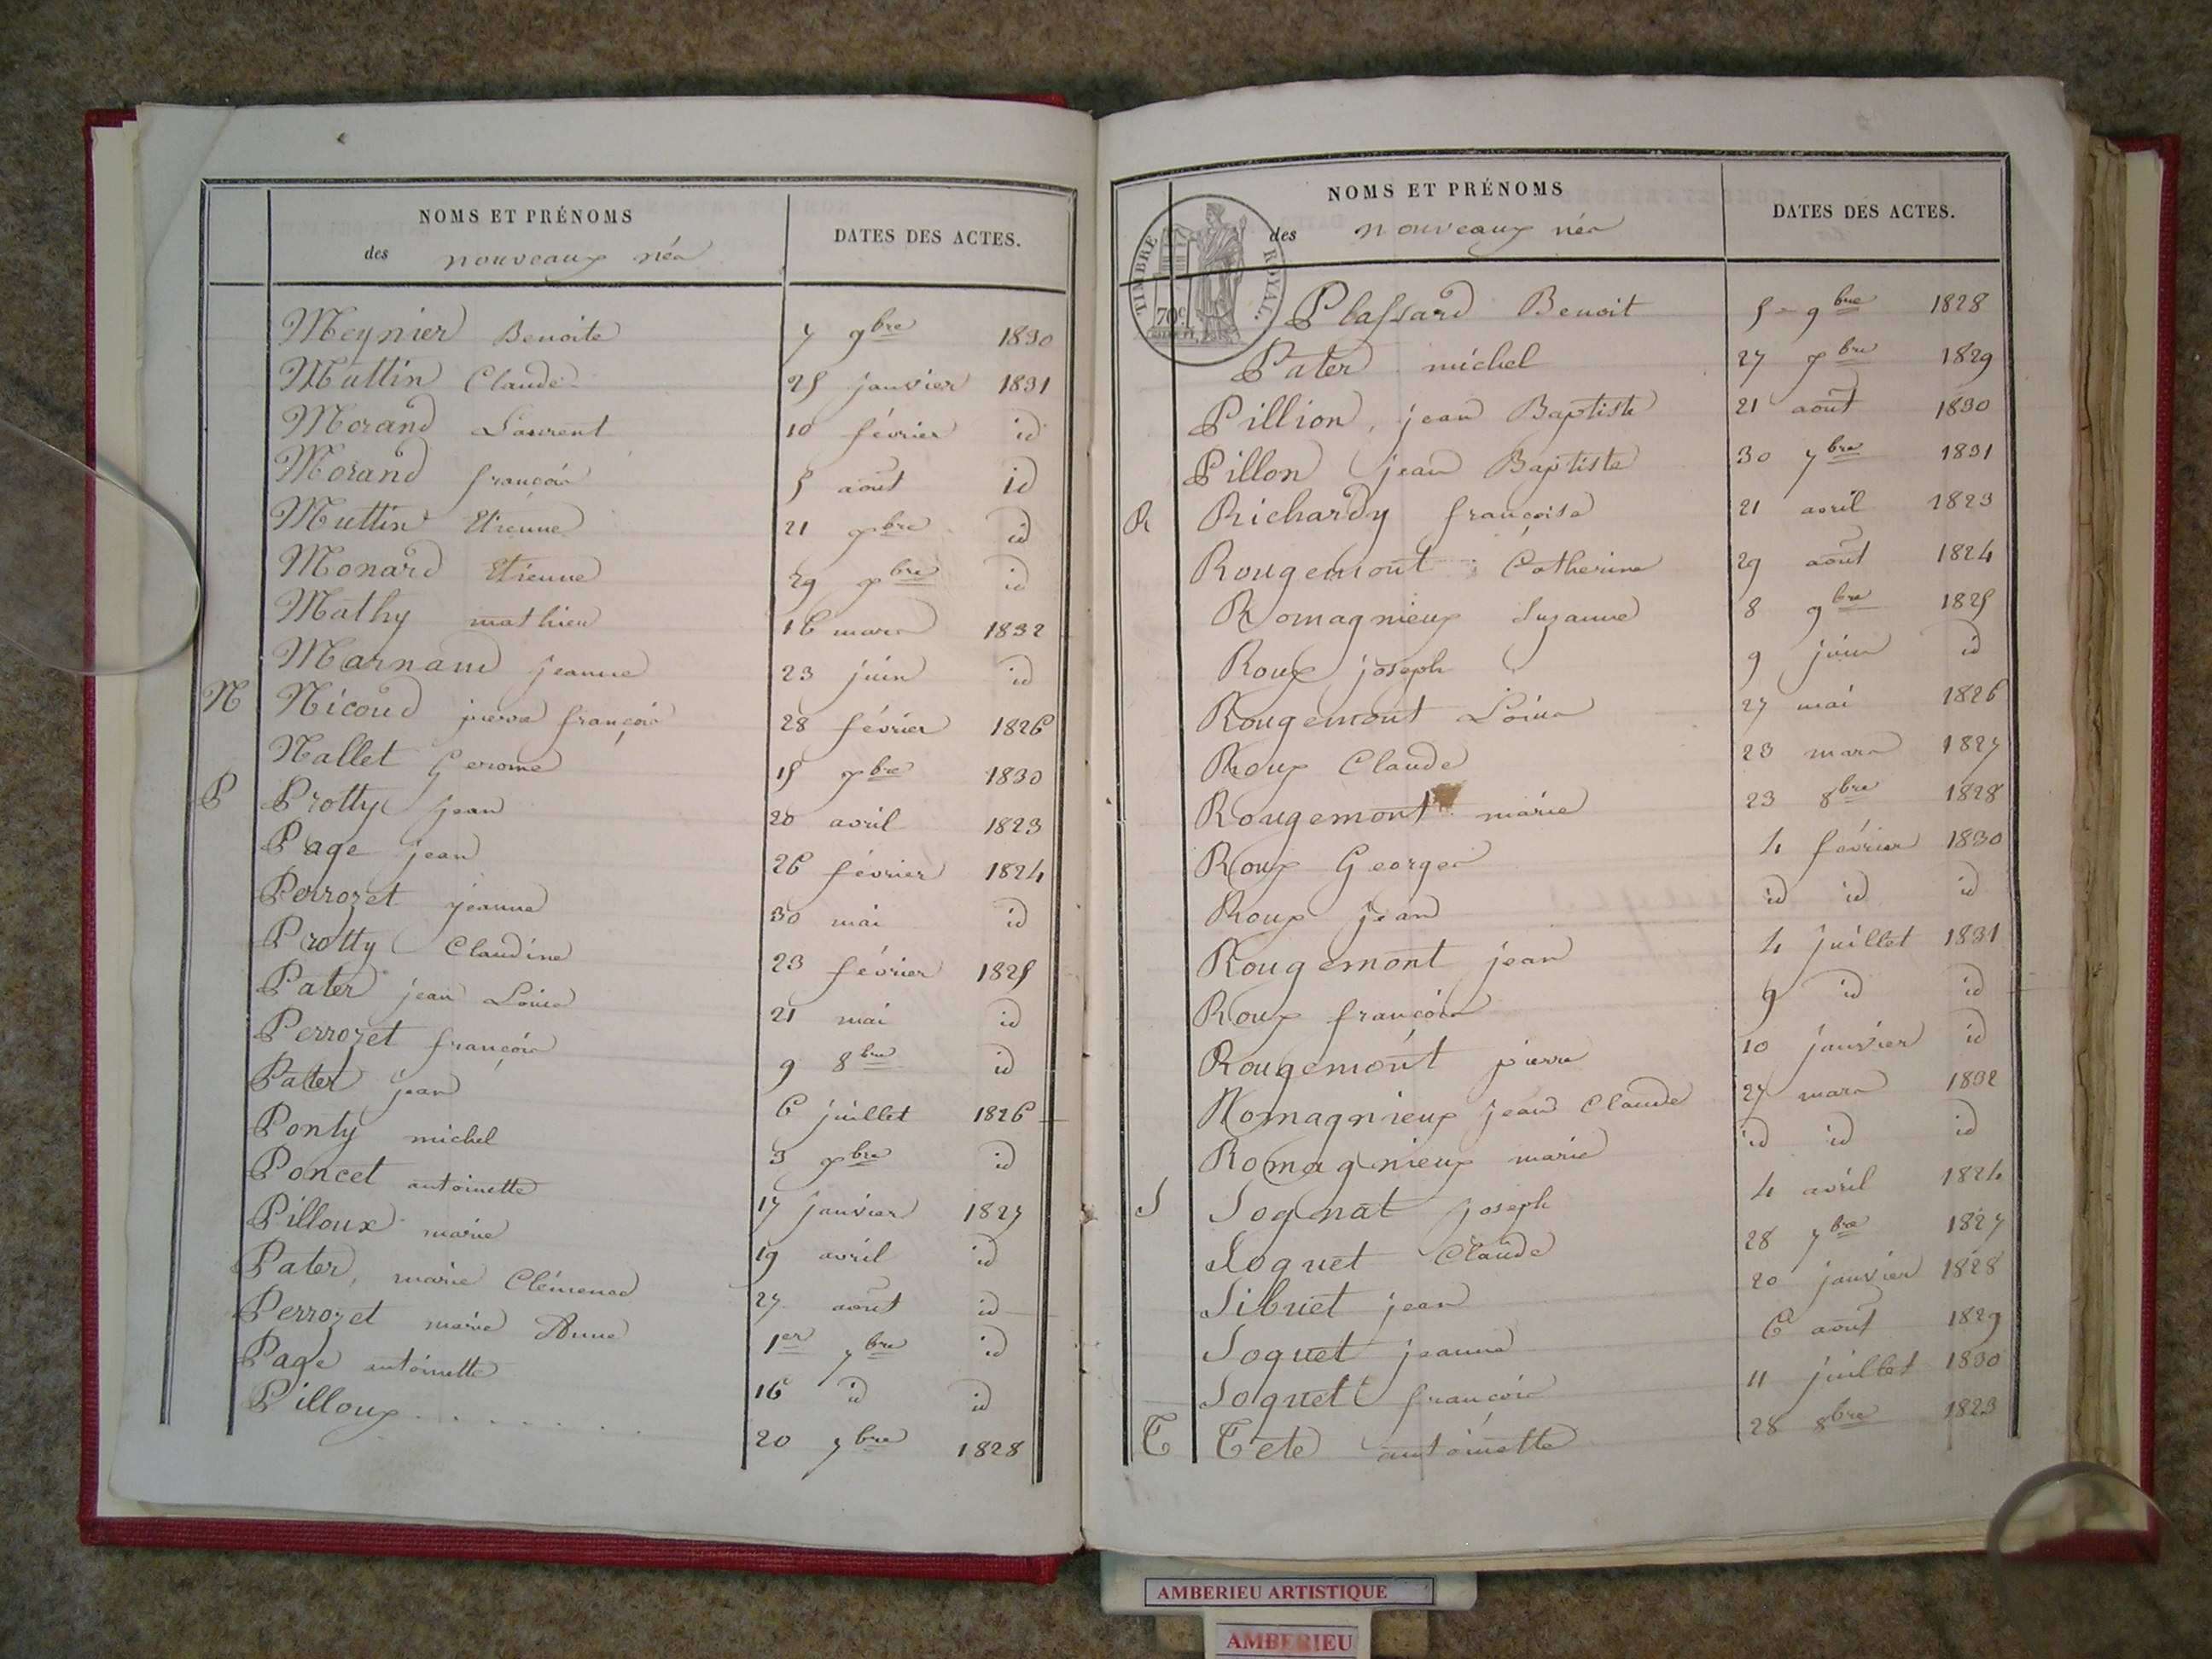 NOMS ET PRÉNOMS
des nouveaux nés
DATES DES ACTES.
Meynier Benoite 7 9bre 1830
Muttin Claude 25 janvier 1831
Morand Laurent 10 février id
Morand françois 5 août id
Muttin Etienne 21 9bre id
Monard Etienne 29 xbre id
Mathy mathieu 16 mars 1832
Marnand jeanne 23 juin id
N Nicoud pierre françois 28 février 1826
Nallet Gerome 15 xbre 1830
P Protty jean 20 avril 1823
Page jean 26 février 1824
Perrozet jeanne 30 mai id
Protty Claudine 23 février 1825
Pater jean Louis 21 mai id
Perrozet françois 9 8bre id
Pater jean 6 juillet 1826
Ponty michel 3 xbre id
Poncet antoinette 17 janvier 1827
Pilloux marie 19 avril id
Pater, marie Clémence 27 août id
Perrozet marie Anne 1er 7bre id
Page antoinette 16 id id
Pilloux . . . . . . . 20 7bre 1828
TIMBRE ROYAL
70c
NOMS ET PRÉNOMS
des nouveaux nés
DATES DES ACTES.
Plassard Benoit 5 9bre 1828
Pater michel 27 xbre 1829
Pillion, jean Baptiste 21 août 1830
Pillon jean Baptiste 30 7bre 1831
R Richardy françoise 21 avril 1823
Rougemont Catherine 29 août 1824
Romagnieux Suzanne 8 9bre 1825
Roux joseph 9 juin id
Rougemont Louis 27 mai 1826
Roux Claude 23 mars 1827
Rougemont marie 23 8bre 1828
Roux Georges 4 février 1830
Roux jean id id id
Rougemont jean 4 juillet 1831
Roux françois 9 id id
Rougemont pierre 10 janvier id
Romagnieux jean Claude 27 mars 1832
Romagnieux marie id id id
S Sognat joseph 4 avril 1824
Soquet Claude 28 7bre 1827
Sibuet jean 20 janvier 1828
Soquet jeanne 6 août 1829
Soquet françois 11 juillet 1830
T Tete antoinette 28 8bre 1823
AMBERIEU ARTISTIQUE
AMBERIEU